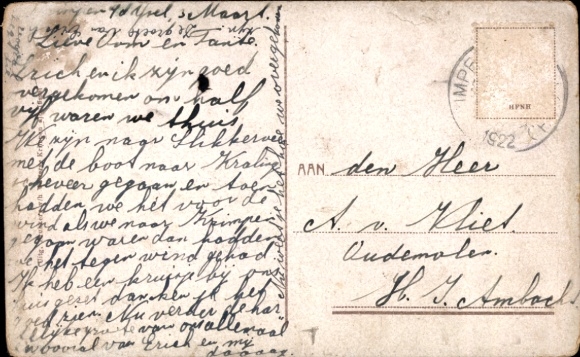 Krimpen a/d IJsel, 3 Maart.
Lieve Oom en Tante.
Erich en ik zijn goed
overgekomen om half
vijf waren we thuis
We zijn naar Slikkerveer
met de boot naar Kraling
scheveer gegaan, en toen
hadden we het voor de
wind als we naar Krimpen
gegaan waren dan hadden
we het tegen wind gehad
Ik heb een kruisje bij ons
huis gezet dan ken je het
zien Nu verder de har
telijke groete van ons allemaal
vooral van Erich en mij
daaaag.
we overgekomen
HPNH
IMPE
1922
AAN den Heer
A. v. Vliet.
Oudemolen
H. I. Ambach